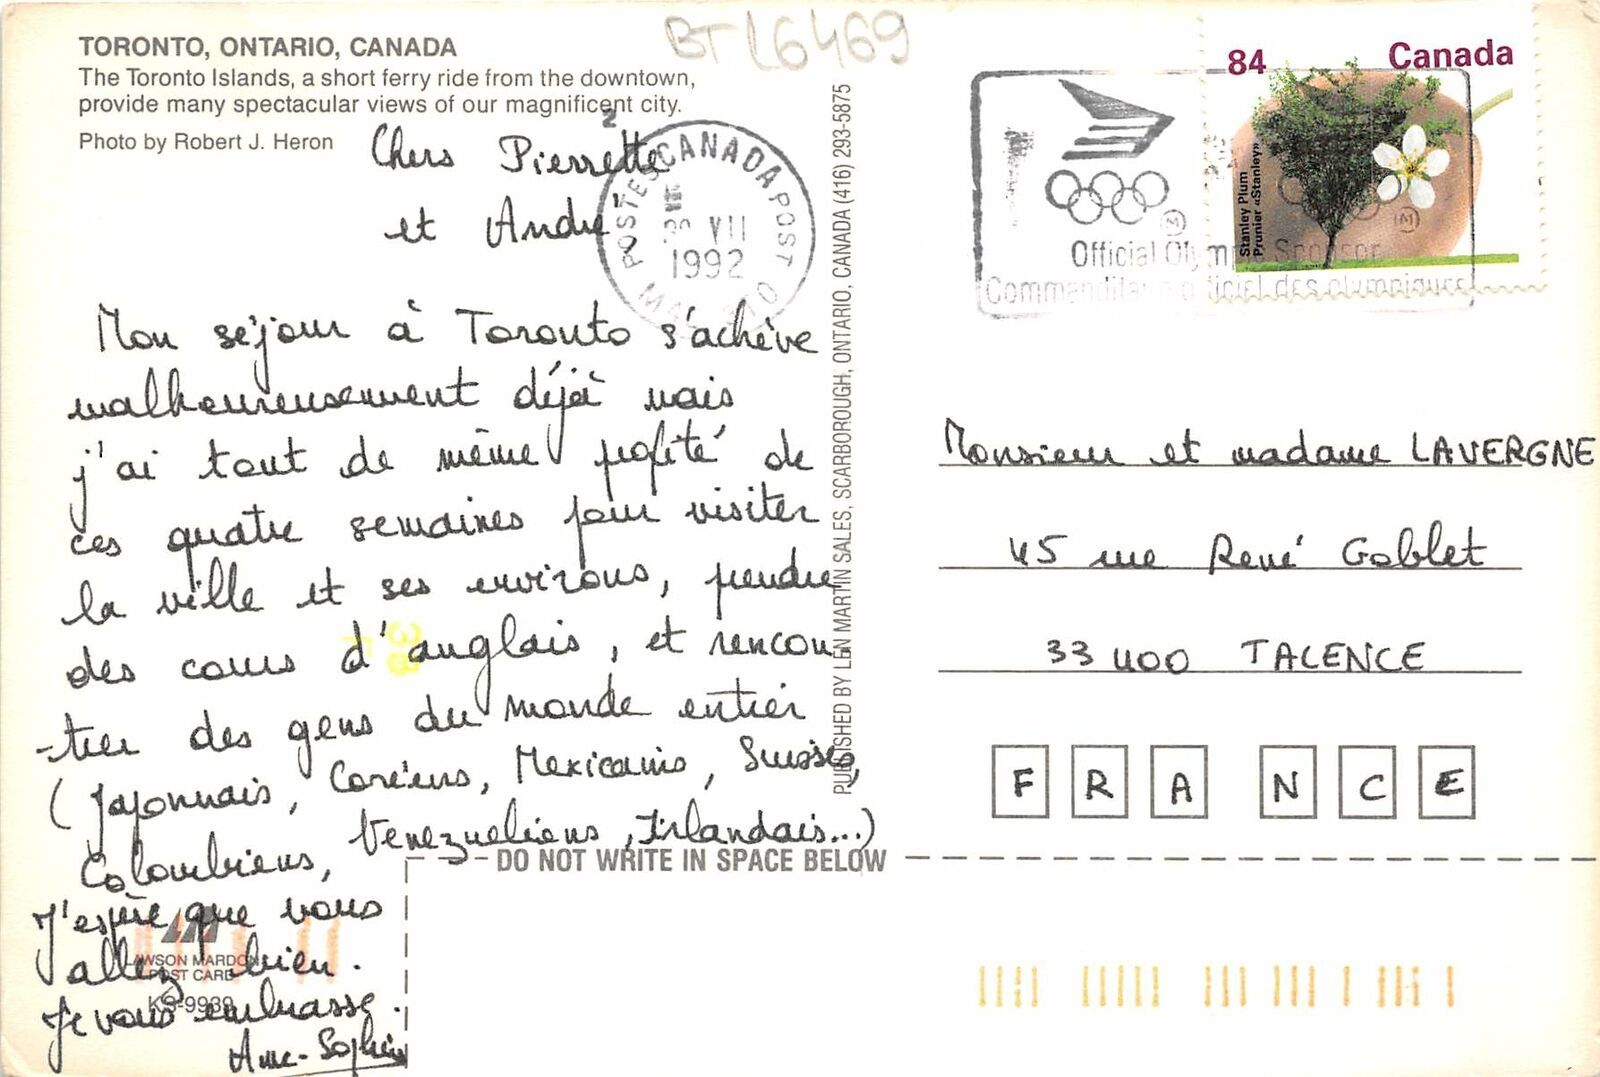 BT L6469
TORONTO, ONTARIO, CANADA
The Toronto Islands, a short ferry ride from the downtown,
provide many spectacular views of our magnificent city.
Photo by Robert J. Heron
Chers Pierrette
et André
Mon séjour à Toronto s'achève
malheureusement déjà mais
j'ai tout de même profité de
ces quatre semaines pour visiter
la ville et ses environs, prendre
des cours d'anglais, et rencon
-trer des gens du monde entier
(Japonnais, Coréens, Mexicains, Suisses,
Colombiens, Venezueliens, Irlandais...)
J'espère que vous
allez bien.
Je vous embrasse.
Anne-Sophie
LAWSON MARDON
POST CARD
KS-9939
POSTES CANADA POST
VII
1992
PUBLISHED BY LEN MARTIN SALES, SCARBOROUGH, ONTARIO, CANADA (416) 293-5875
84 Canada
Stanley Plum
Prunier «Stanley»
Official Olympic Sponsor
Commanditaire officiel des olympiques
Monsieur et madame LAVERGNE
45 rue René Goblet
33 400 TALENCE
F R A N C E
DO NOT WRITE IN SPACE BELOW